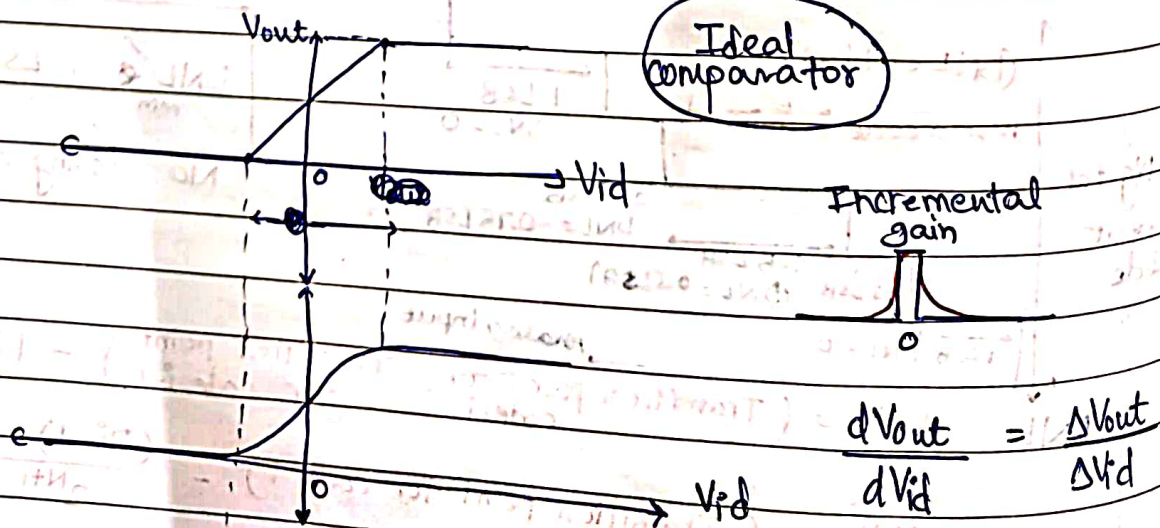 Vout
Ideal
comparator
0
Vid
Incremental
gain
0
0
Vid
dVout / dVid = ΔVout / ΔVid